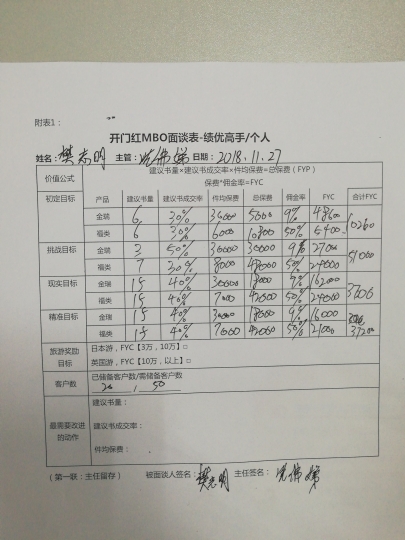 附表1：
开门红MBO面谈表-绩优高手/个人
姓名：樊志明 主管： 日期：2018.11.27
价值公式 建议书量×建议书成交率×件均保费=总保费（FYP）
保费*佣金率=FYC
初定目标 产品 建议书量 建议书成交率 件均保费 总保费 佣金率 FYC 合计FYC
金瑞 6 30% 9% 4860 10260
福类 6 30% 6000 10800 50% 5400
挑战目标 金瑞 3 50% 30000 9% 51000
福类 7 8000 50% 24000
现实目标 金瑞 15 40% 9%
福类 15 40% 7000 42000 50%
精准目标 金瑞 15 40% 9% 16000
福类 15 40% 7000 42000 50% 21000 37200
旅游奖励目标 日本游，FYC【3万，10万】□
英国游，FYC【10万，以上】□
客户数 已储备客户数/需储备客户数
20 / 50
最需要改进的动作 建议书量：
建议书成交率：
件均保费：
（第一联：主任留存） 被面谈人签名：樊志明 主任签名：